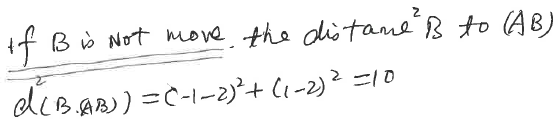 If B is Not move. the distane² B to (AB)
d²(B.(AB)) = (-1-2)² + (1-2)² = 10